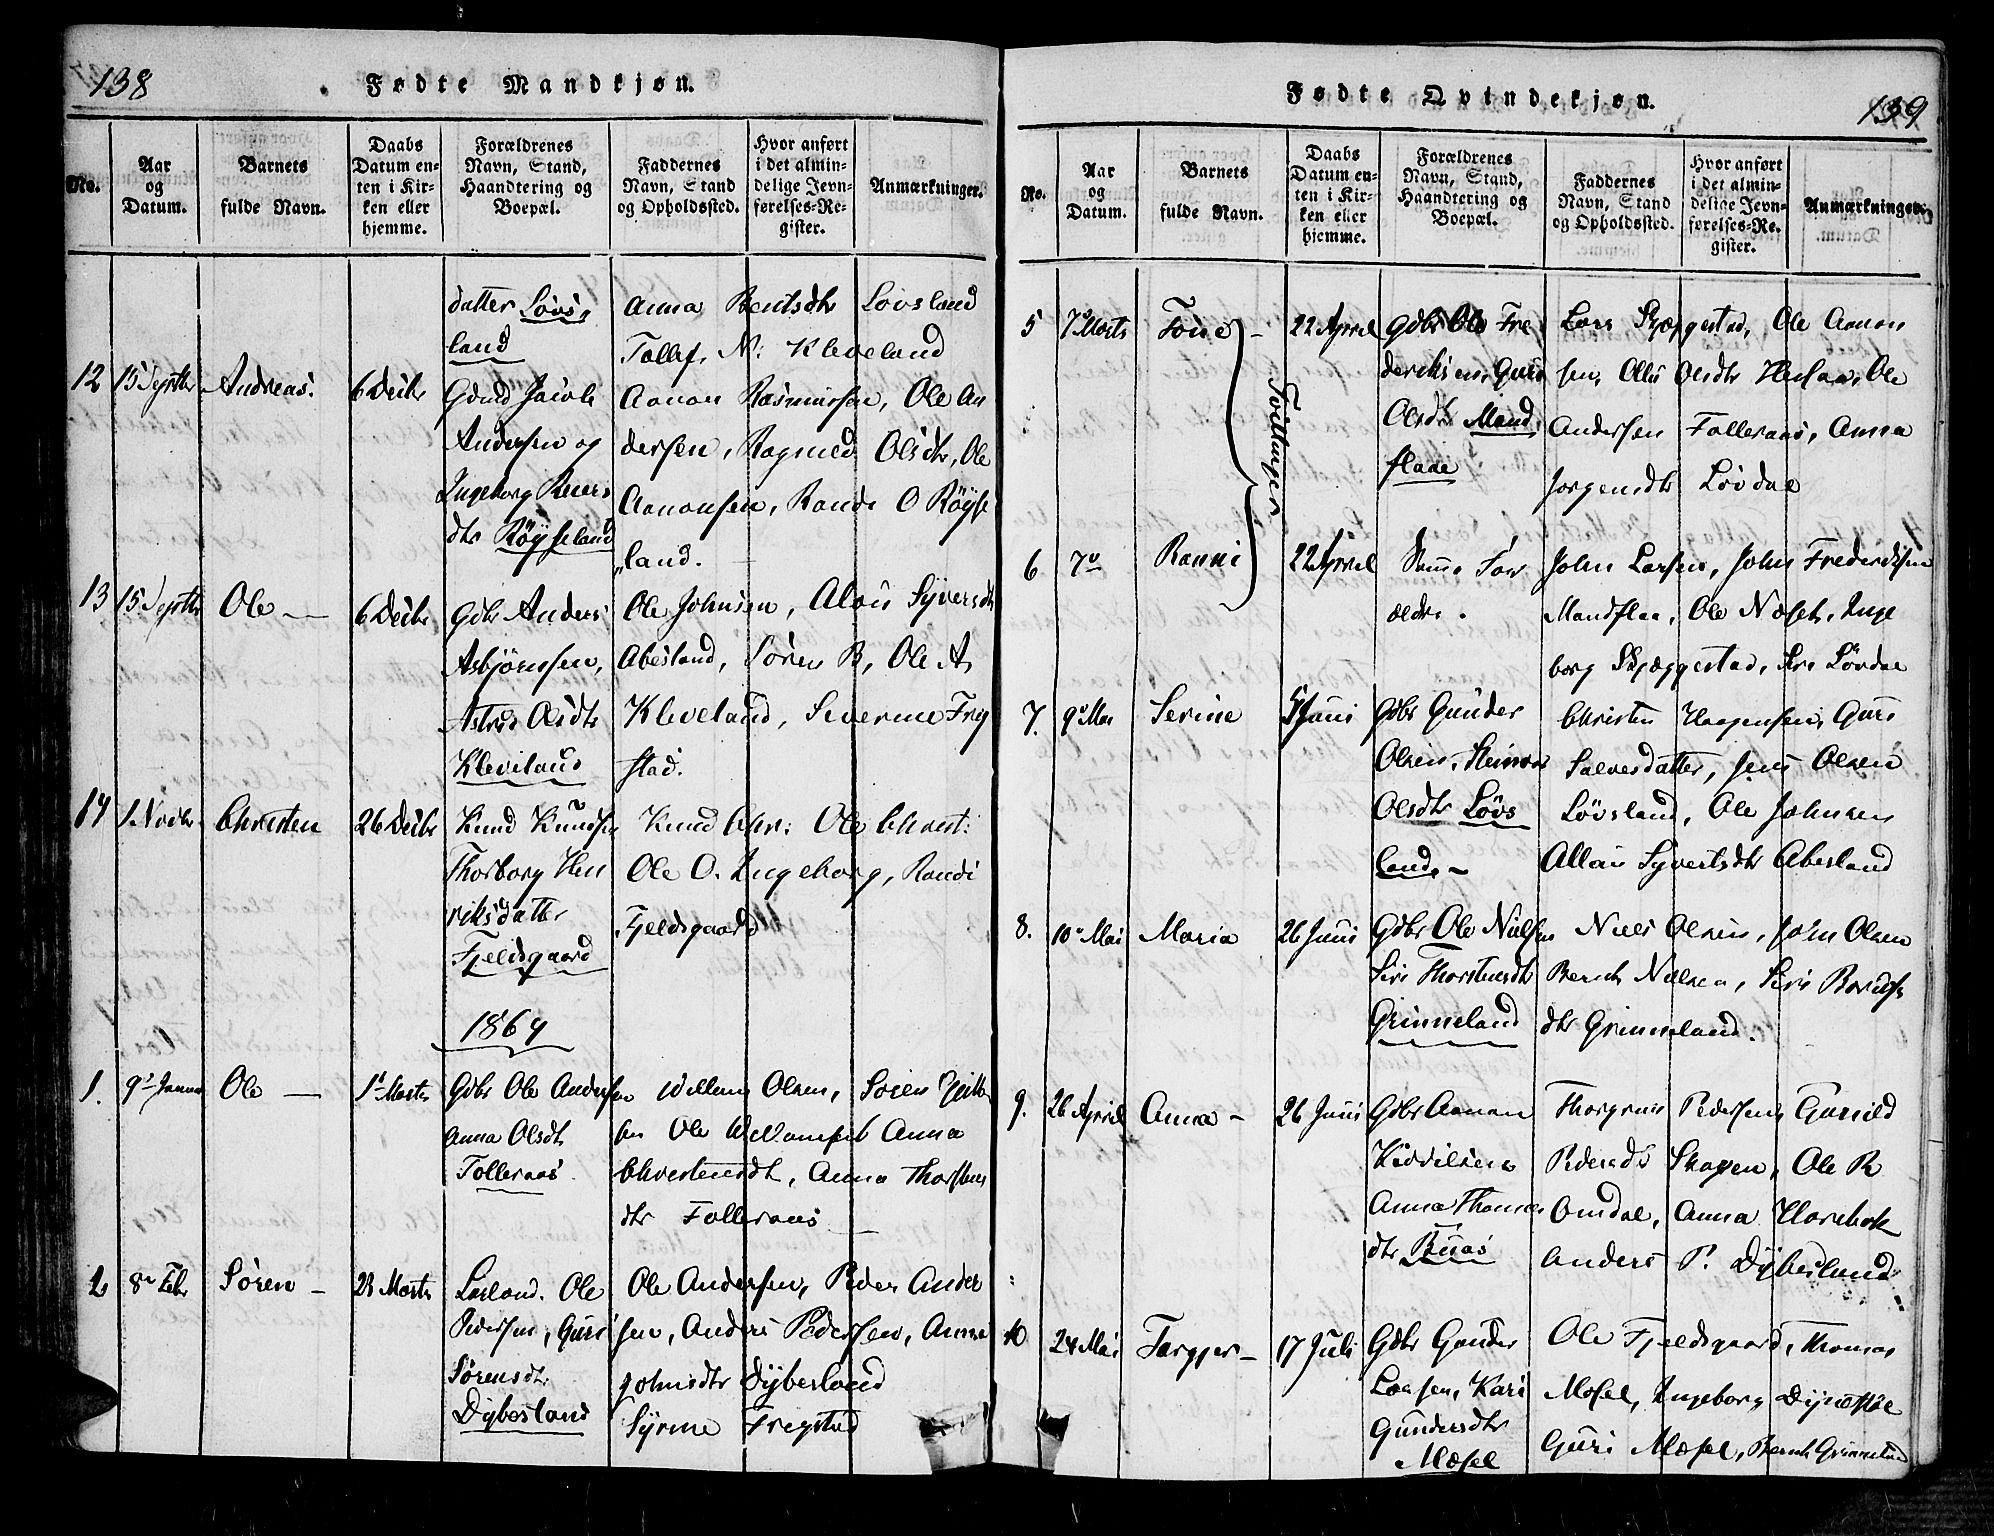 138
Fødte Mandkjøn.
No.
Aar
og
Datum.
Barnets
fulde Navn.
Daabs
Datum en-
ten i Kir-
ken eller
hjemme.
Forældrenes
Navn, Stand,
Haandtering og
Boepæl.
Faddernes
Navn, Stand
og Opholdssted.
Hvor anført
i det almin-
delige Jevn-
førelses-Re-
gister.
Anmærkninger.
datter Lövs,
land
Anna Bentsdtr Lövsland
Tollef. N. Kleveland
12 15 Septbr Andreas. 6 Decbr
Gdmd Jacob
Andersen og
Ingeborg Reiers
dtr Röyseland
Aanon Rasmussen, Ole An
dersen, Ragnild Olsdtr, Ole
Aanonsen, Randi O Röyse
land.
13 15 Septbr Ole — 6 Decbr
Gdbr Anders
Asbjörnsen,
Astrid Olsdtr
Kleveland
Ole Johnsen, Alais Syversdtr
Abesland, Sören B, Ole A
Kleveland, Severine Freg
stad.
14 1 Novbr Christen 26 Decbr
Knud Knudsen
Thorborg Hen
riksdatter
Fjeldsgaard
Knud Chr: Ole Christ:
Ole O. Ingeborg, Randi
Fjeldsgaard
1864
1. 9d Januar Ole — 1d Marts
Gdbr Ole Andersen
Anna Olsdtr
Tolleraas
Willum Olsen, Sören
Ole Anna
Christensdt, Anna Thorstens
dtr Tolleraas —
2 8de Febr Sören — 28 Marts
Ole
Pedersen, Guri
Sörensdt.
Dybesland
Ole Andersen, Peder Ander
sen, Anders Pedersen, Anna
Johnsdtr Dybesland
Syrine Fregstad
Fødte Qvindekjøn.
139
No.
Aar
og
Datum.
Barnets
fulde Navn.
Daabs
Datum en-
ten i Kir-
ken eller
hjemme.
Forældrenes
Navn, Stand,
Haandtering og
Boepæl.
Faddernes
Navn, Stand
og Opholdssted.
Hvor anført
i det almin-
delige Jevn-
førelses-Re-
gister.
Anmærkninger.
5 7d Marts Tone — 22 April
Gdbr Ole Fre
deriksen, Guri
Olsdtr Mand
flaae
Lars Skjæggestad, Ole Aanon
sen, Olsdtr Ole
Andersen Tolleraas, Anna
Jörgensdtr Lövdal
Tvillinger
6 7d Ranni 22 April
Samme For
ældre.
John Larsen, John Frederiksen
Mandflaa, Ole Næset, Inge
borg Skjæggestad, Siri Lövdal
7. 9d Mai Serine 5 Juni
Gdbr Gunder
Olsen, Steinvor
Olsdtr Lövs
land. —
Christen Haagensen, Guri
Salvesdatter, Jens Olsen
Lövsland, Ole Johnsen
Allais Syvertsdtr Abesland
8. 10d Mai Maria 26 Juni
Gdbr Ole Nielsen
Siri Thorstensdt
Grinneland
Niels Olsen, John Olsen
Berent Nielsen, Siri Berents
dtr Grinneland.
9. 26 April Anna — 26 Juni
Gdbr Aanon
Kittilsen
Anna Thomas
dtr Buaas
Thorgrim Pedersen, Gunild
Pedersdt Skapen, Ole R
Omdal, Anna Hornbok
Anders P. Dybesland
10 24 Mai Targjer — 17 Juli
Gdbr Gunder
Larsen, Kari
Gundersdtr
Mosel
Ole Fjeldsgaard, Thomas
Mosel, Ingeborg
Guri Mosel, Berent Grinneland